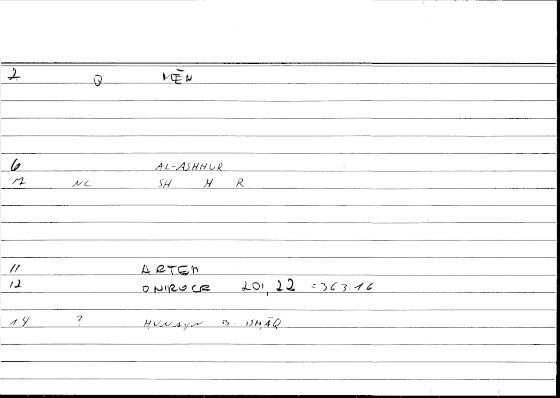 2 Q MĒN
6 AL-ASHHUR
7 NC SH H R
11 ARTEM
12 ONIROCR 201, 22 =363.16
14 ? HUNAYN B. ISHĀQ